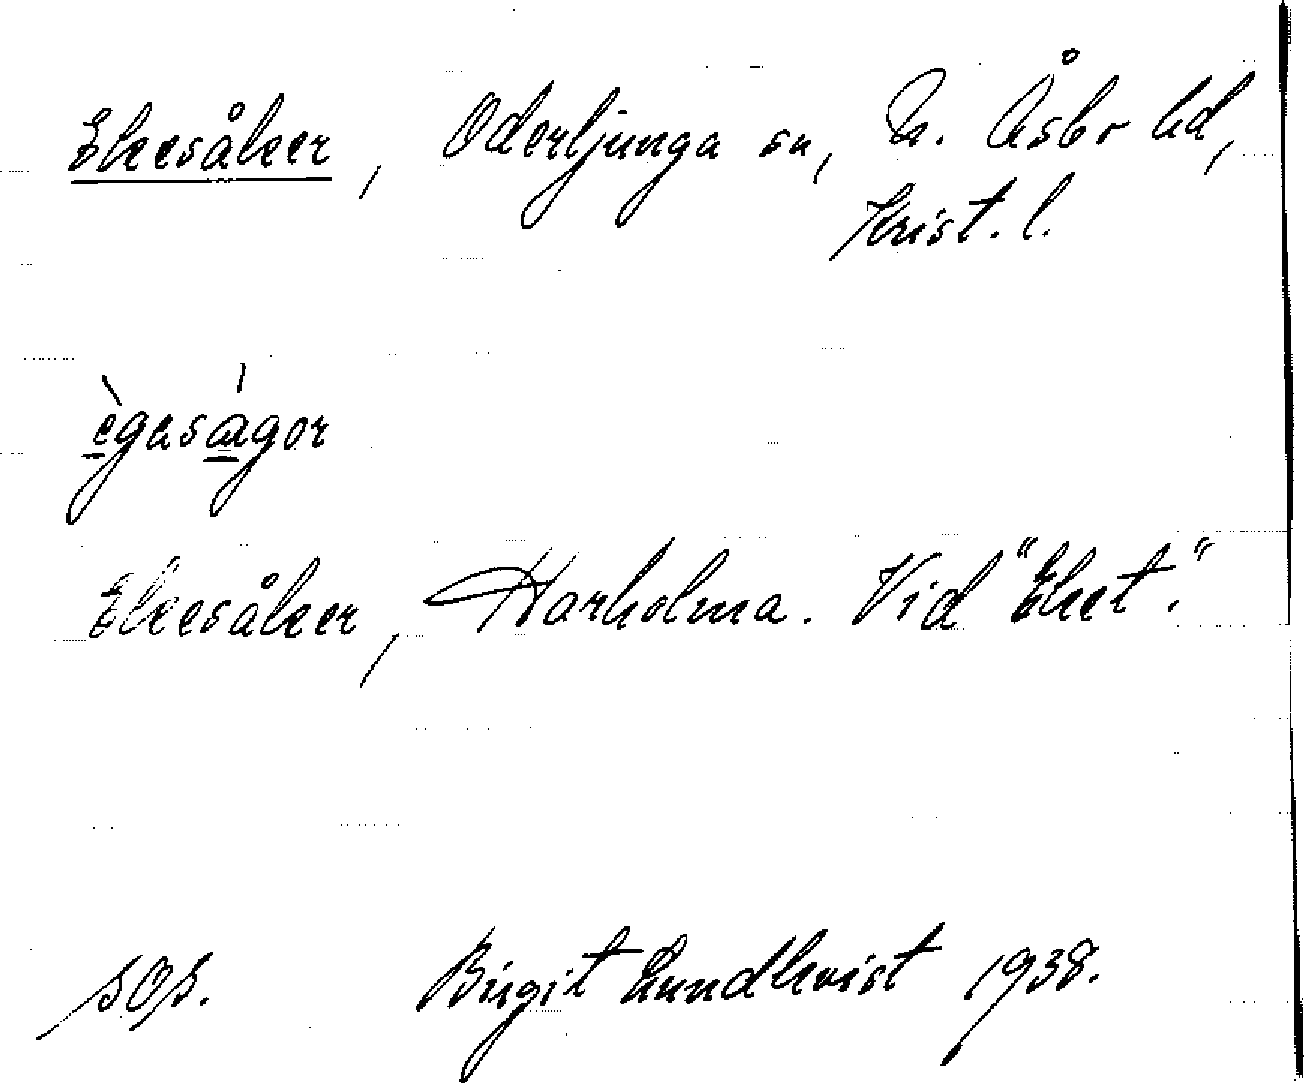 Ekesåker, Oderljunga sn, N. Åsbo hd,
Krist. l.
ègasàgor
Ekesåker, Harholma. Vid "Eket".
SOS. Birgit Lundkvist 1938.